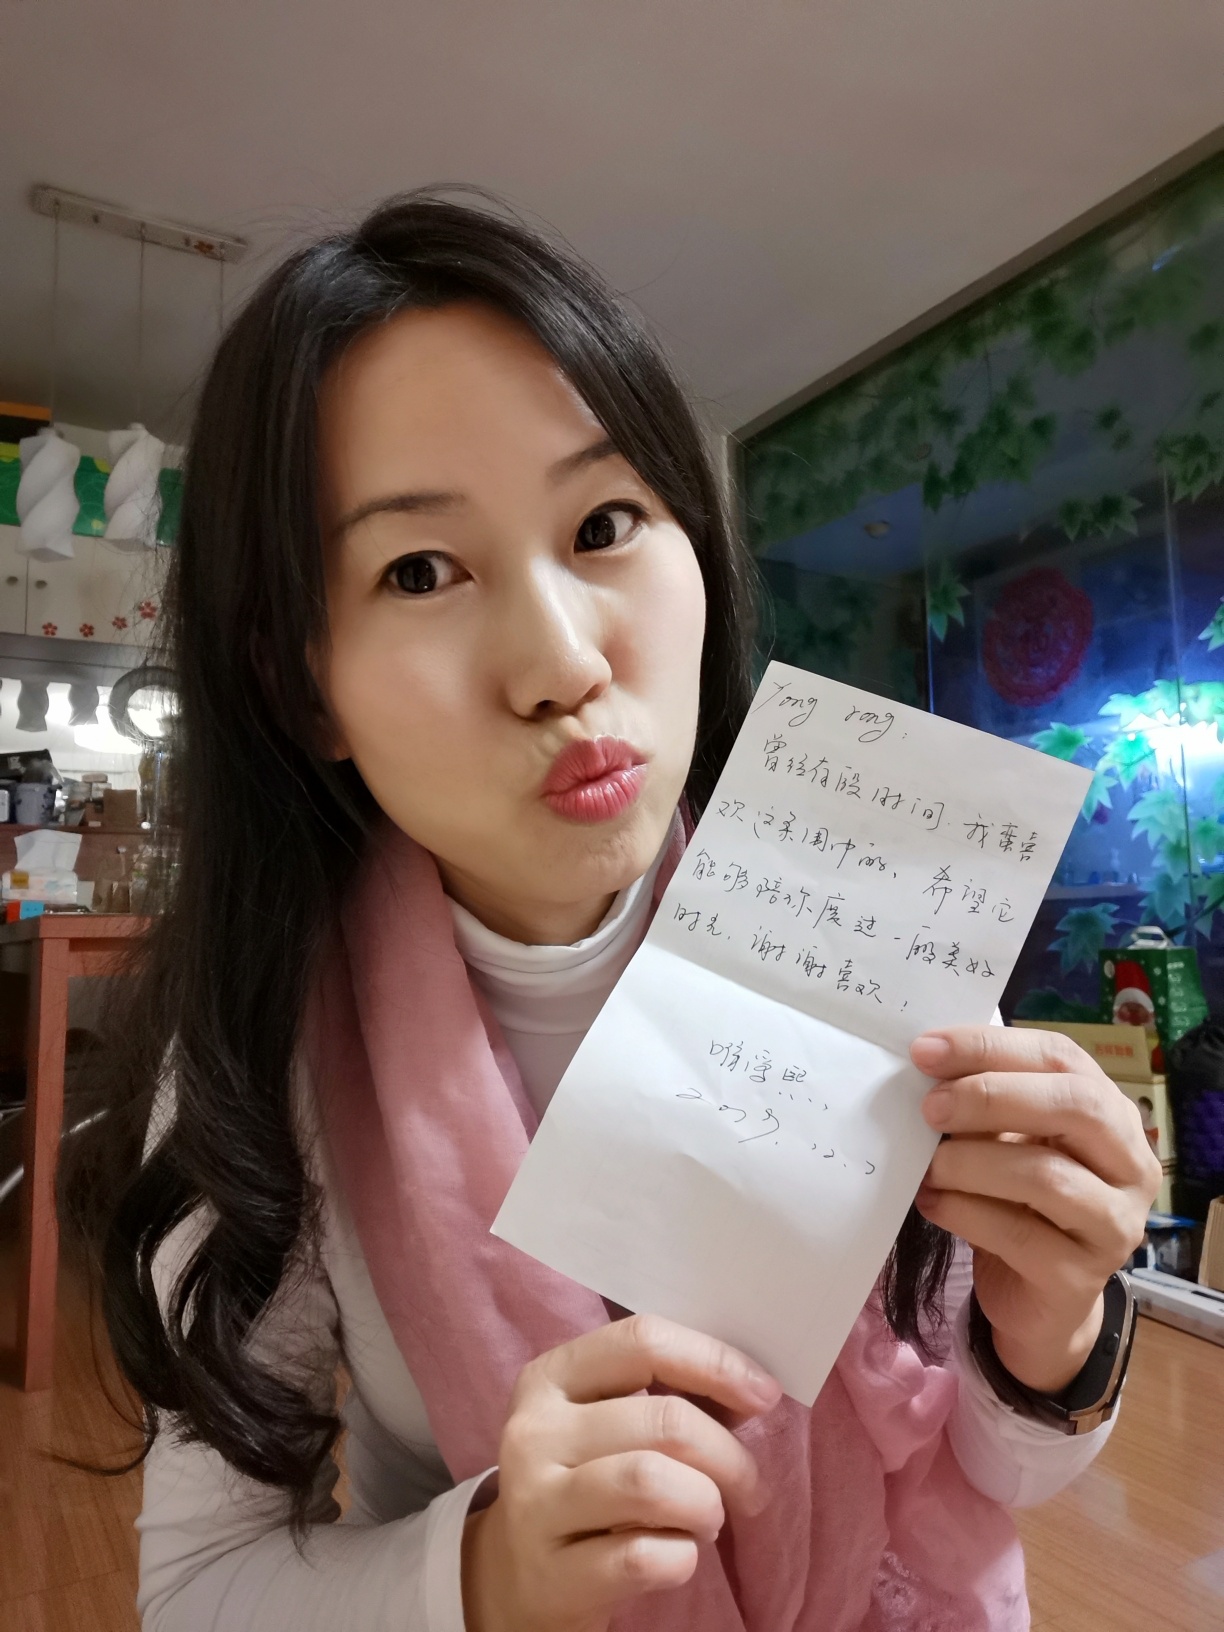 Yong rong:
曾经有段时间.我蛮喜
欢这条围巾的、希望它
能够陪你度过一段美好
时光.谢谢喜欢!
2019.12.7